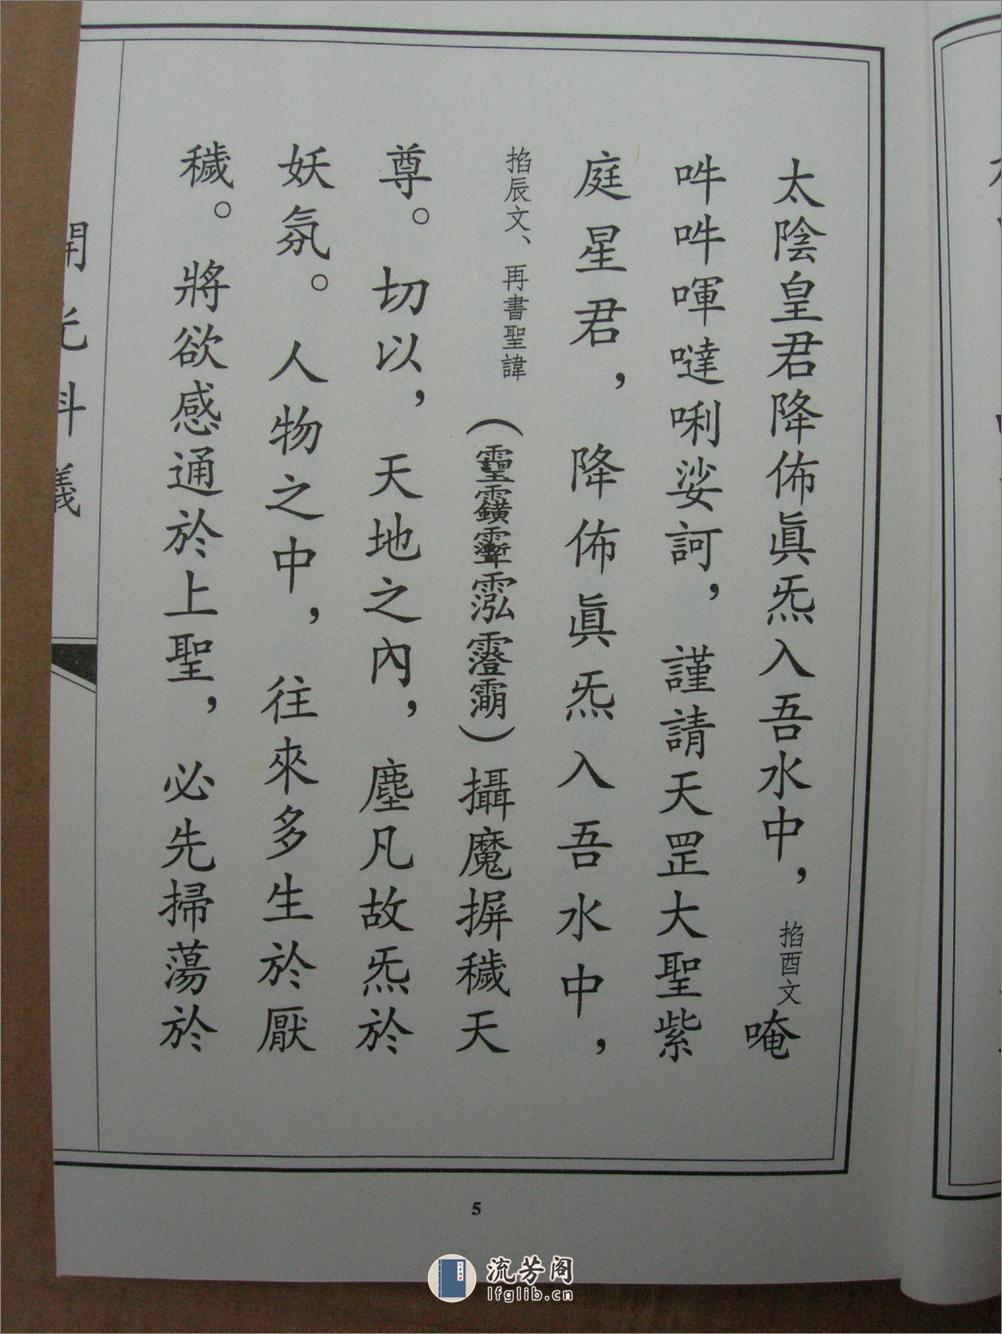 太陰皇君降佈眞炁入吾水中，掐酉文唵
吽吽㖶噠唎娑訶，謹請天罡大聖紫
庭星君，降佈眞炁入吾水中，
掐辰文、再書聖諱（）攝魔摒穢天
尊。切以，天地之內，塵凡故炁於
妖氛。人物之中，往來多生於厭
穢。將欲感通於上聖，必先掃蕩於
開光科儀
5
流芳阁
lfglib.cn